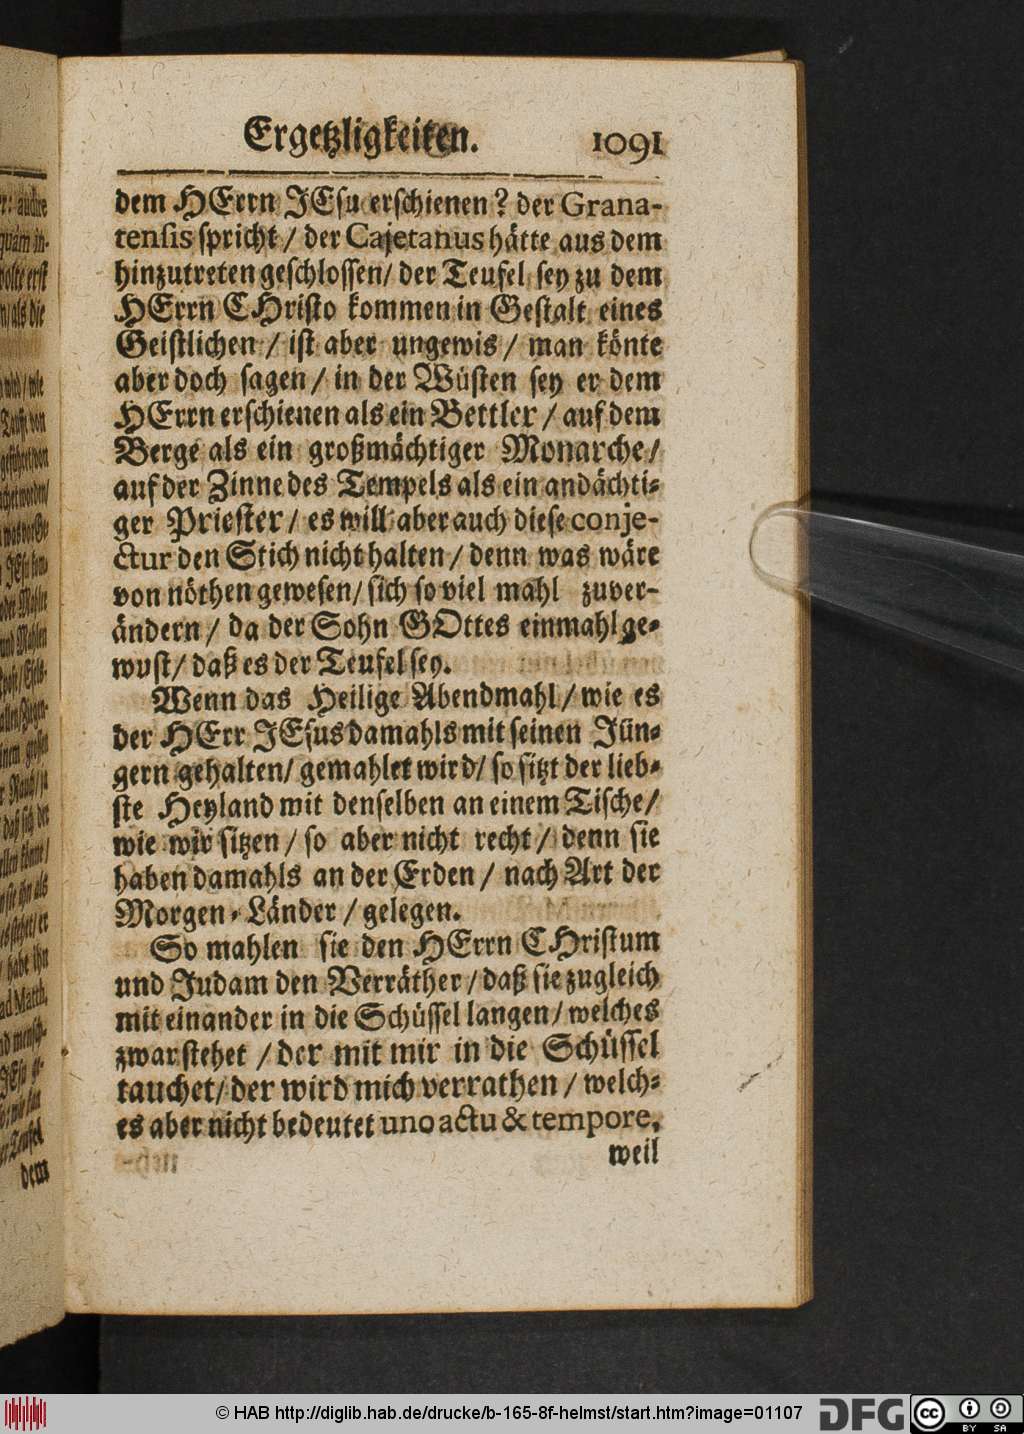 Ergetzligkeiten. 1091
dem HErrn JEsu erschienen? der Grana-
tensis spricht / der Cajetanus hätte aus dem
hinzutreten geschlossen/ der Teufel sey zu dem
HErrn CHristo kommen in Gestalt eines
Geistlichen / ist aber ungewis / man könte
aber doch sagen / in der Wüsten sey er dem
HErrn erschienen als ein Bettler / auf dem
Berge als ein großmächtiger Monarche/
auf der Zinne des Tempels als ein andächti-
ger Priester / es will aber auch diese conje-
ctur den Stich nicht halten / denn was wäre
von nöthen gewesen/ sich so viel mahl zuver-
ändern / da der Sohn GOttes einmahl ge-
wust/ daß es der Teufel sey.
Wenn das Heilige Abendmahl / wie es
der HErr JEsus damahls mit seinen Jün-
gern gehalten/ gemahlet wird/ so sitzt der lieb-
ste Heyland mit denselben an einem Tische/
wie wir sitzen / so aber nicht recht / denn sie
haben damahls an der Erden / nach Art der
Morgen-Länder / gelegen.
So mahlen sie den HErrn CHristum
und Judam den Verräther / daß sie zugleich
mit einander in die Schüssel langen / welches
zwar stehet / der mit mir in die Schüssel
tauchet/ der wird mich verrathen / welch-
es aber nicht bedeutet uno actu & tempore,
weil
dem
© HAB http://diglib.hab.de/drucke/b-165-8f-helmst/start.htm?image=01107
DFG
cc BY SA